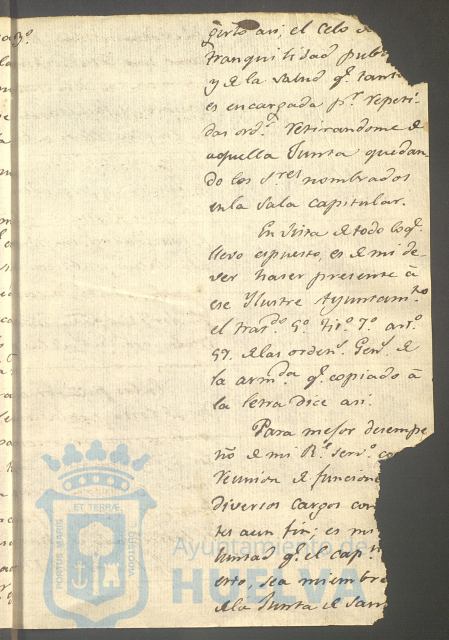 asi, el Celo de
tranquilidad pub
y de la Salud qe. tant
es encargada pr. repeti-
das ords. Retirandome de
aquella Junta quedan-
do los Sres nombrados
en la Sala capitular.
En vista de todo lo qe.
llevo espuesto, es de mi de-
ver haser presente â
ese Ylustre Ayuntamto
el tratdo. 5º. titº. 7º. artº.
57. de las ordens. Gens. de
la armda. qe. copiado â
la letra dice asi.
Para mejor desempe
ño de mi Rl. servo. co
reunion de funcione
diversos cargos con
tes a un fin; es mi
luntad qe. el cap.n
erto, sea miembro
de la Junta de San
ET TERRÆ
PORTUS MARIS
CUSTODIA
Ayuntamiento de
HUELVA